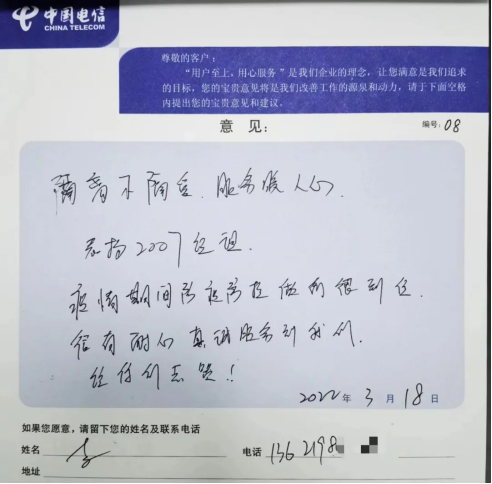 中国电信
CHINA TELECOM
尊敬的客户：
“用户至上，用心服务”是我们企业的理念，让您满意是我们追求
的目标，您的宝贵意见将是我们改善工作的源泉和动力，请于下面空格
内提出您的宝贵意见和建议。
意 见：
编号：08
隔离不隔爱，服务暖人心，
表扬2007经祖，
疫情期间防疫防控做的很到位，
很有耐心真诚服务到我们，
给你们点赞！
2022年3月18日
如果您愿意，请留下您的姓名及联系电话
姓名
电话 1362198
地址